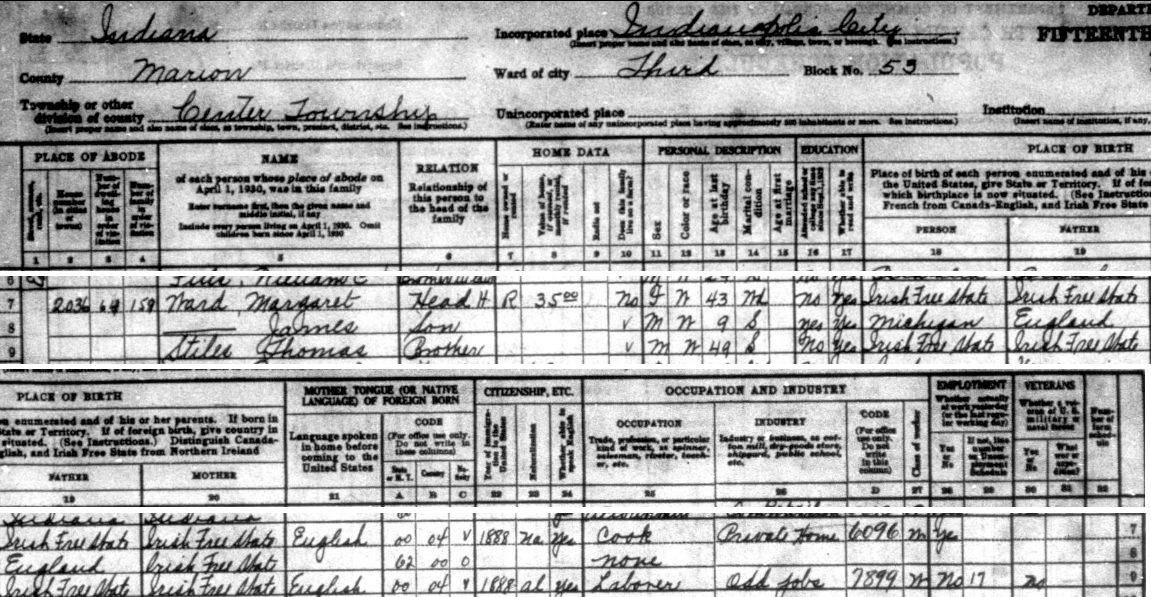 State Indiana Incorporated place Indianapolis City DEPART
(Insert proper name and also name of class, as city, village, town, or borough. See instructions.) FIFTEENTH
County Marion Ward of city Third Block No. 53
Township or other
division of county Center Township Unincorporated place Institution
(Insert proper name and also name of class, as township, town, precinct, district, etc. See instructions.) (Enter name of any unincorporated place having approximately 500 inhabitants or more. See instructions.) (Insert name of institution, if any,
PLACE OF ABODE NAME RELATION HOME DATA PERSONAL DESCRIPTION EDUCATION PLACE OF BIRTH
of each person whose place of abode on
April 1, 1930, was in this family
Enter surname first, then the given name and
middle initial, if any
Include every person living on April 1, 1930. Omit
children born since April 1, 1930
Relationship of
this person to
the head of the
family
Sex
Color or race
Age at last birthday
Marital condition
Age at first marriage
Place of birth of each person enumerated and of his
the United States, give State or Territory. If of
which birthplace is now situated. (See Instruc
French from Canada-English, and Irish Free State
PERSON FATHER
1 2 3 4 5 6 7 8 9 10 11 12 13 14 15 16 17 18 19
6 William C
7 2036 159 Ward, Margaret Head H R 35 00 No F W 43 no Yes Irish Free State Irish Free State
8 James Son v M W 9 S yes Yes Michigan England
9 Stiles Thomas Brother v M W 49 S No Yes Irish Free State Irish Free State
PLACE OF BIRTH MOTHER TONGUE (OR NATIVE LANGUAGE) OF FOREIGN BORN CITIZENSHIP, ETC. OCCUPATION AND INDUSTRY EMPLOYMENT VETERANS
enumerated and of his or her parents. If born in
State or Territory. If of foreign birth, give country in
situated. (See Instructions.) Distinguish Canada-
glish, and Irish Free State from Northern Ireland
FATHER MOTHER
Language spoken
in home before
coming to the
United States
CODE
(For office use only.
Do not write in
these columns)
OCCUPATION
Trade, profession, or particular
kind of work, as spinner,
salesman, riveter, teach-
er, etc.
INDUSTRY
Industry or business, as cot-
ton mill, dry-goods store,
shipyard, public school,
etc.
CODE
(For office
use only.
Do not
write
in this
column)
Class of worker
19 20 21 A B C 22 23 24 25 26 D 27 28 29 30 31 32
Indiana Indiana
Irish Free State Irish Free State English 00 04 V 1888 na yes Cook Private Home 6096 W Yes 7
England Irish Free State 62 00 0 none 8
Irish Free State Irish Free State English 00 04 V 1888 al yes Laborer Odd jobs 7899 W No 17 no 9